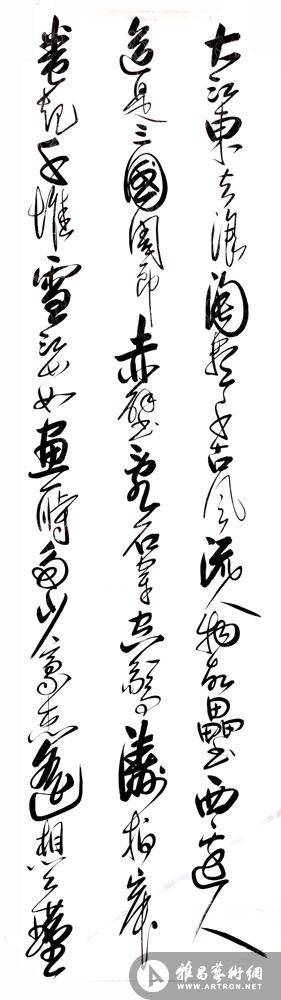 大江東去浪淘盡千古風流人物故壘西邊人
道是三國周郎赤壁亂石穿空驚濤拍岸
卷起千堆雪江山如畫一時多少豪杰遙想公瑾
雅昌藝術網
WWW.ARTRON.NET